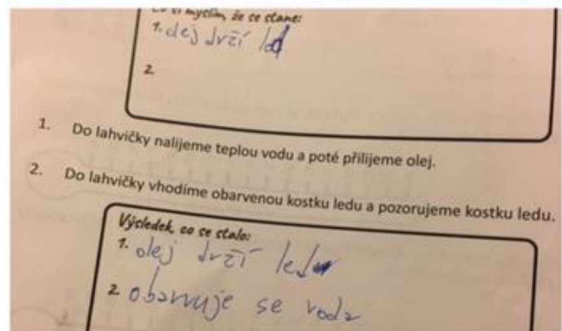 Co si myslím, že se stane:
1. olej drží led
2.
1. Do lahvičky nalijeme teplou vodu a poté přilijeme olej.
2. Do lahvičky vhodíme obarvenou kostku ledu a pozorujeme kostku ledu.
Výsledek, co se stalo:
1. olej drží led
2. obarvuje se voda